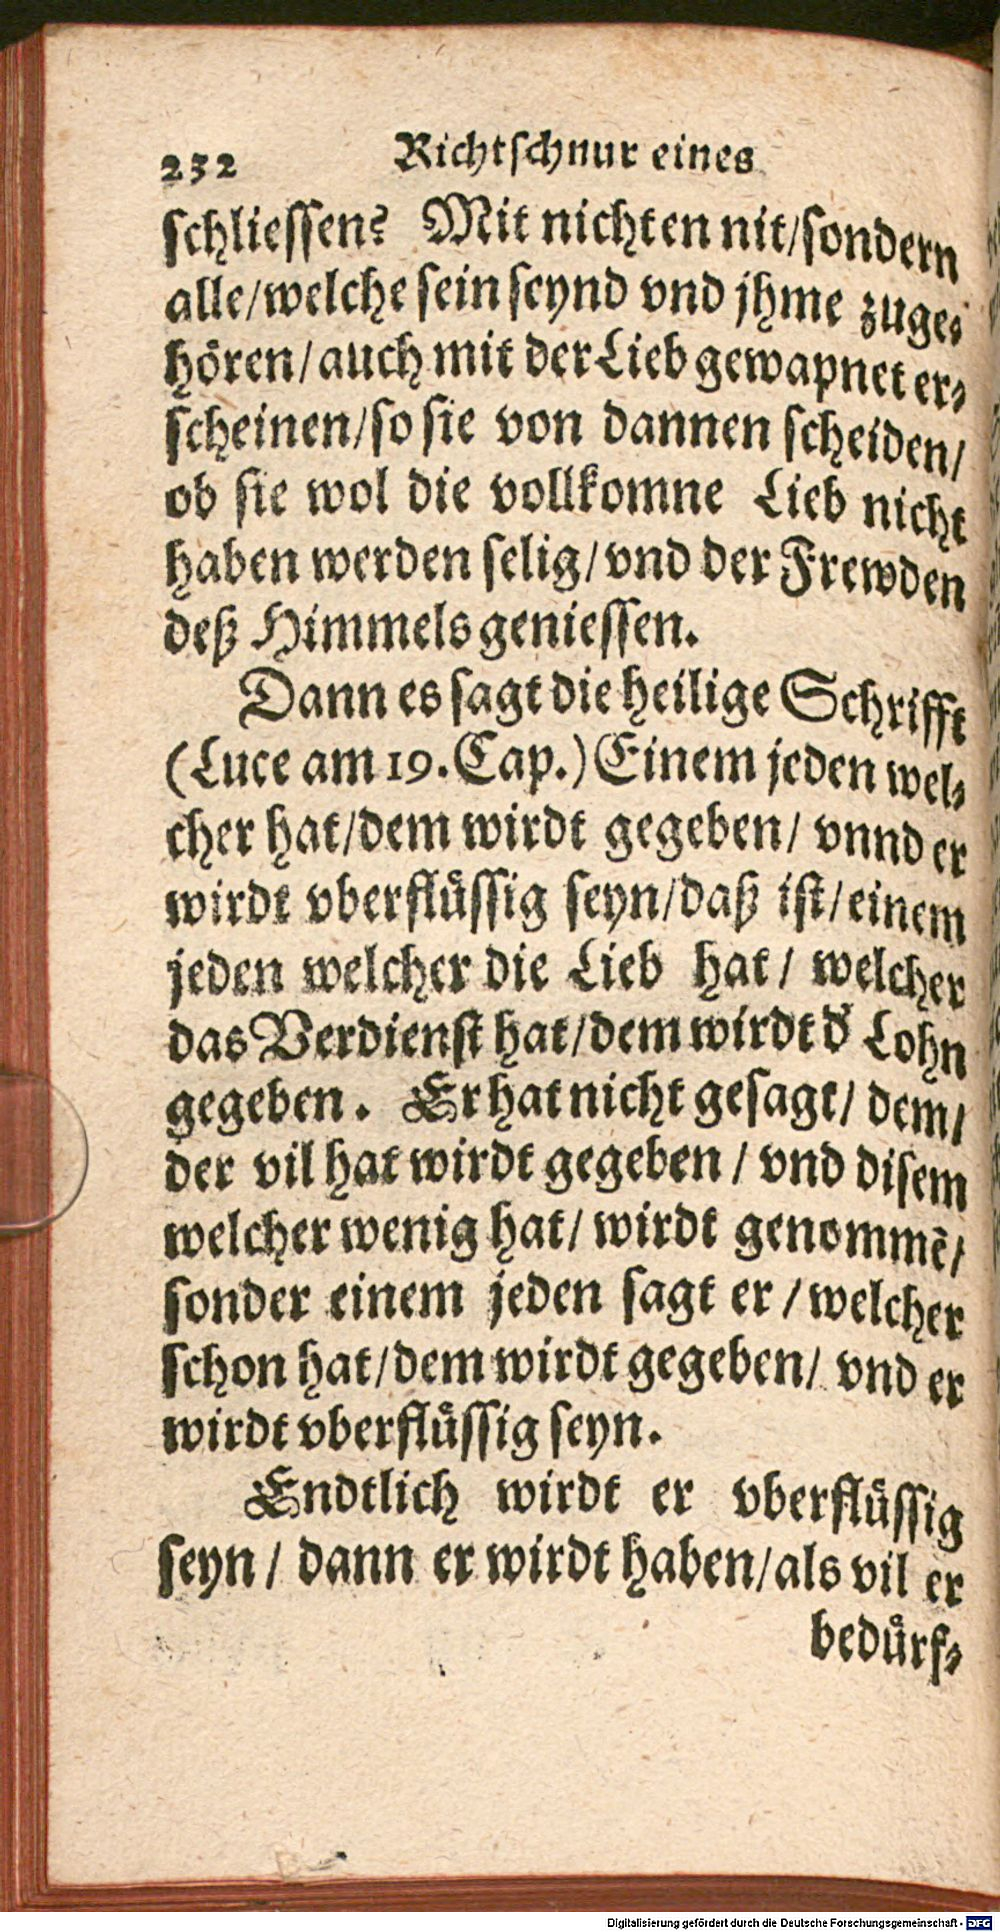 232 Richtschnur eines
schliessen? Mit nichten nit/sondern
alle/welche sein seynd vnd jhme zuge⸗
hören/auch mit der Lieb gewapnet er⸗
scheinen/so sie von dannen scheiden/
ob sie wol die vollkomne Lieb nicht
haben werden selig/vnd der Frewden
deß Himmels geniessen.
Dann es sagt die heilige Schrifft
(Luce am 19. Cap.) Einem jeden wel⸗
cher hat/dem wirdt gegeben/ vnnd er
wirdt vberflüssig seyn/daß ist/einem
jeden welcher die Lieb hat/ welcher
das Verdienst hat/dem wirdt d' Lohn
gegeben. Er hat nicht gesagt/ dem/
der vil hat wirdt gegeben / vnd disem
welcher wenig hat/ wirdt genommē/
sonder einem jeden sagt er / welcher
schon hat/dem wirdt gegeben/ vnd er
wirdt vberflüssig seyn.
Endtlich wirdt er vberflüssig
seyn / dann er wirdt haben/als vil er
bedürf⸗
Digitalisierung gefördert durch die Deutsche Forschungsgemeinschaft - DFG